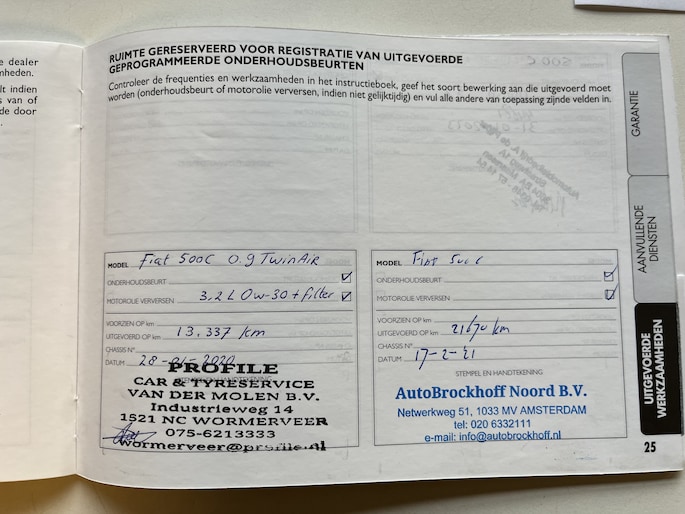 e dealer
mheden.
lt indien
s van of
de door
.
RUIMTE GERESERVEERD VOOR REGISTRATIE VAN UITGEVOERDE
GEPROGRAMMEERDE ONDERHOUDSBEURTEN
Controleer de frequenties en werkzaamheden in het instructieboek, geef het soort bewerking aan die uitgevoerd moet
worden (onderhoudsbeurt of motorolie verversen, indien niet gelijktijdig) en vul alle andere van toepassing zijnde velden in.
MODEL Fiat 500C 0.9 TwinAir
ONDERHOUDSBEURT
MOTOROLIE VERVERSEN 3,2 L 0w-30 + filter
VOORZIEN OP km
UITGEVOERD OP km 13.337 km
CHASSIS N°
DATUM 28-01-2020
PROFILE
CAR & TYRESERVICE
VAN DER MOLEN B.V.
Industrieweg 14
1521 NC WORMERVEER
075-6213333
wormerveer@profile.nl
MODEL Fiat 500 C
ONDERHOUDSBEURT
MOTOROLIE VERVERSEN
VOORZIEN OP km
UITGEVOERD OP km 21670 km
CHASSIS N°
DATUM 17-2-21
STEMPEL EN HANDTEKENING
AutoBrockhoff Noord B.V.
Netwerkweg 51, 1033 MV AMSTERDAM
tel: 020 6332111
e-mail: info@autobrockhoff.nl
GARANTIE
AANVULLENDE
DIENSTEN
UITGEVOERDE
WERKZAAMHEDEN
25